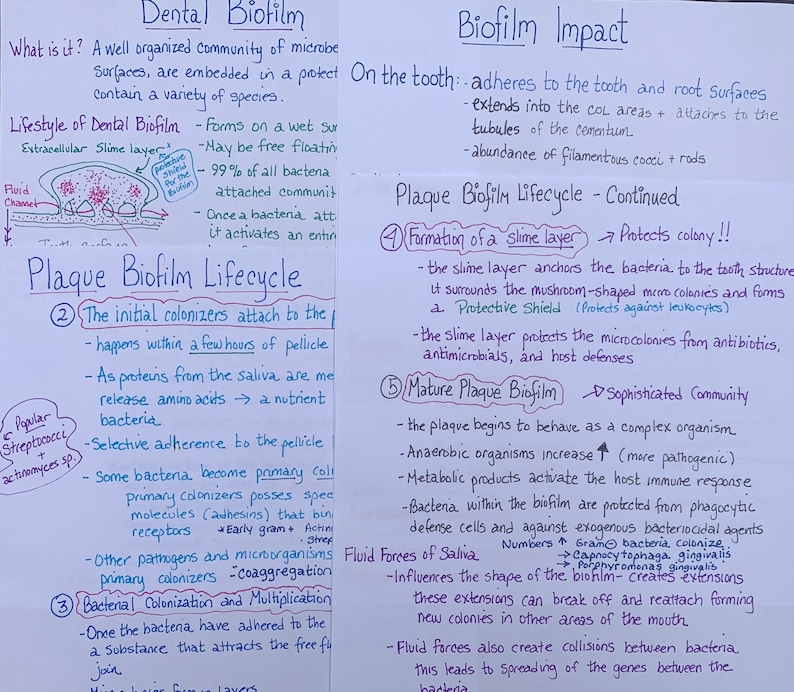 Dental Biofilm
What is it? A well organized community of microbe
surfaces, are embedded in a protect
contain a variety of species.
Lifestyle of Dental Biofilm
- Forms on a wet sur
Extracellular Slime layer
- May be free floatin
protective
shield
for the
Biofilm
- 99% of all bacteria
attached communit
Fluid
Channel
- Once a bacteria att
it activates an entir
Plaque Biofilm Lifecycle
② The initial colonizers attach to the
- happens within a few hours of pellicle
- As proteins from the saliva are me
release amino acids → a nutrient
bacteria
- Selective adherence to the pellicle
Popular
Streptococci
+
actinomyces sp.
- Some bacteria become primary col
primary colonizers posses spec
molecules (adhesins) that bin
receptors *Early gram + Actin
· Strep
- Other pathogens and microorganisms
primary colonizers - "coaggregation
③ Bacterial Colonization and Multiplication
- Once the bacteria have adhered to the
a substance that attracts the free fl
join
Biofilm Impact
On the tooth: - adheres to the tooth and root surfaces
- extends into the COL areas + attaches to the
tubules of the cementum
- abundance of filamentous cocci + rods
Plaque Biofilm Lifecycle - Continued
④ Formation of a slime layer → Protects colony!!
- the slime layer anchors the bacteria to the tooth structure
it surrounds the mushroom-shaped micro colonies and forms
a Protective Shield (Protects against leukocytes)
- the slime layer protects the microcolonies from antibiotics,
antimicrobials, and host defenses
⑤ Mature Plaque Biofilm → Sophisticated Community
- the plaque begins to behave as a complex organism
- Anaerobic organisms increase ↑ (more pathogenic)
- Metabolic products activate the host immune response
- Bacteria within the biofilm are protected from phagocytic
defense cells and against exogenous bacteriocidal agents
Numbers ↑ Gram ⊖ bacteria colonize
→ Capnocytophaga gingivalis
→ Porphyromonas gingivalis
Fluid Forces of Saliva
- Influences the shape of the biofilm - creates extensions
these extensions can break off and reattach forming
new colonies in other areas of the mouth
- Fluid forces also create collisions between bacteria
this leads to spreading of the genes between the
bacteria